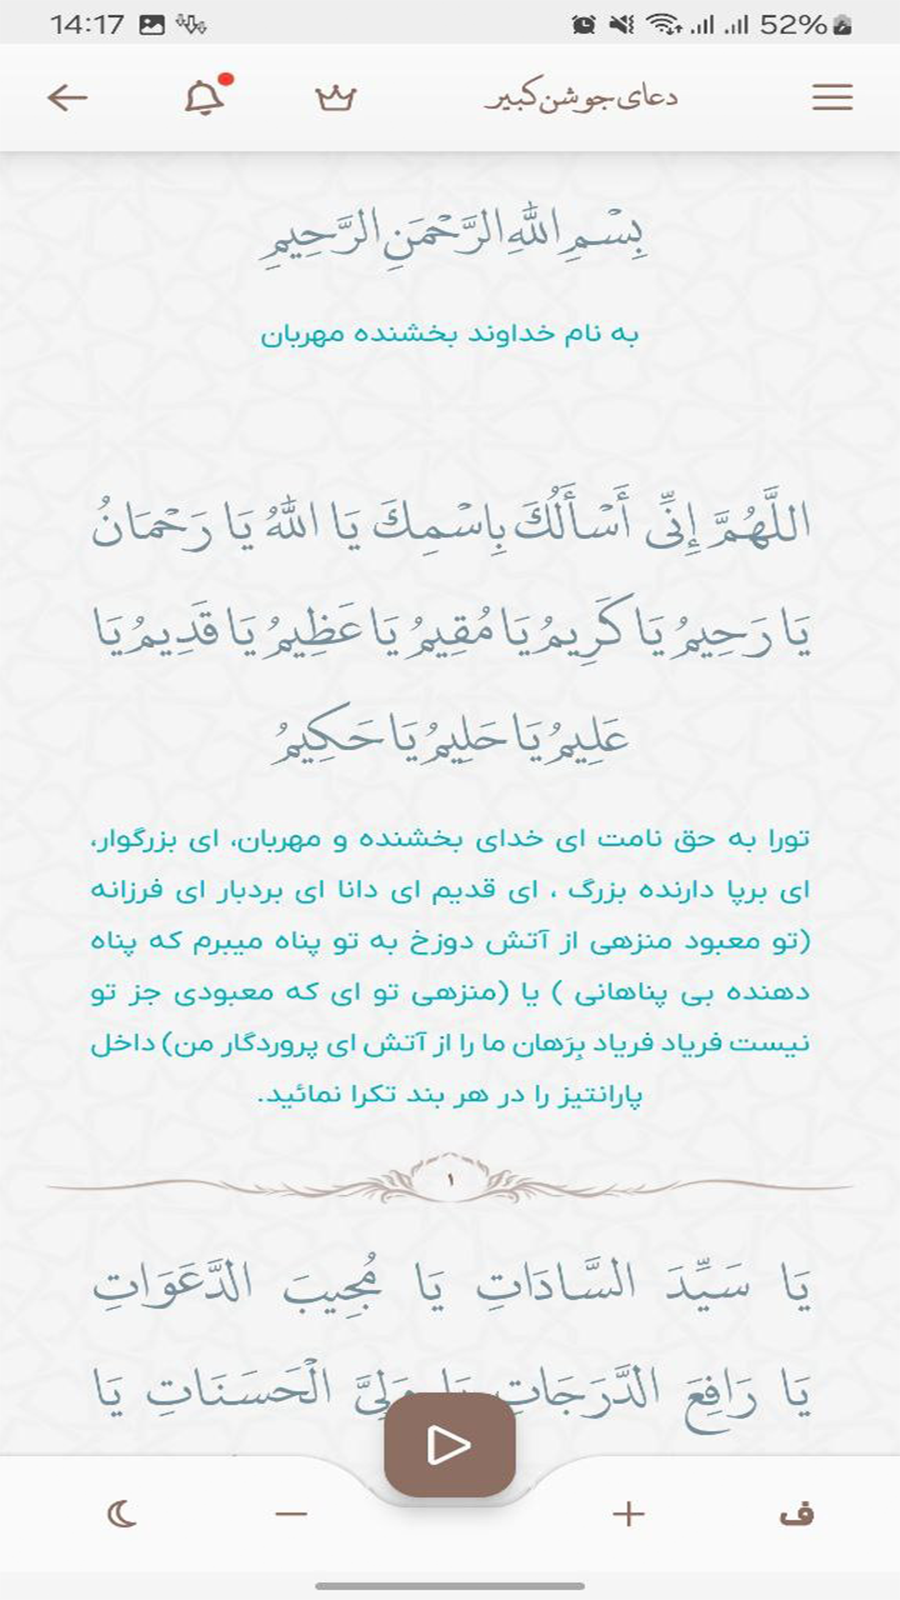 14:17 52%
دعای جوشن کبیر
بِسْمِ اللَّهِ الرَّحْمَنِ الرَّحِيمِ
به نام خداوند بخشنده مهربان
اللَّهُمَّ إِنِّى أَسْأَلُكَ بِاسْمِكَ يَا اللَّهُ يَا رَحْمَانُ
يَا رَحِيمُ يَا كَرِيمُ يَا مُقِيمُ يَا عَظِيمُ يَا قَدِيمُ يَا
عَلِيمُ يَا حَلِيمُ يَا حَكِيمُ
تورا به حق نامت ای خدای بخشنده و مهربان، ای بزرگوار،
ای برپا دارنده بزرگ ، ای قدیم ای دانا ای بردبار ای فرزانه
(تو معبود منزهی از آتش دوزخ به تو پناه میبرم که پناه
دهنده بی پناهانی ) یا (منزهی تو ای که معبودی جز تو
نیست فریاد فریاد بِرَهان ما را از آتش ای پروردگار من) داخل
پارانتیز را در هر بند تکرا نمائید.
۱
يَا سَيِّدَ السَّادَاتِ يَا مُجِيبَ الدَّعَوَاتِ
يَا رَافِعَ الدَّرَجَاتِ يَا وَلِيَّ الْحَسَنَاتِ يَا
ف